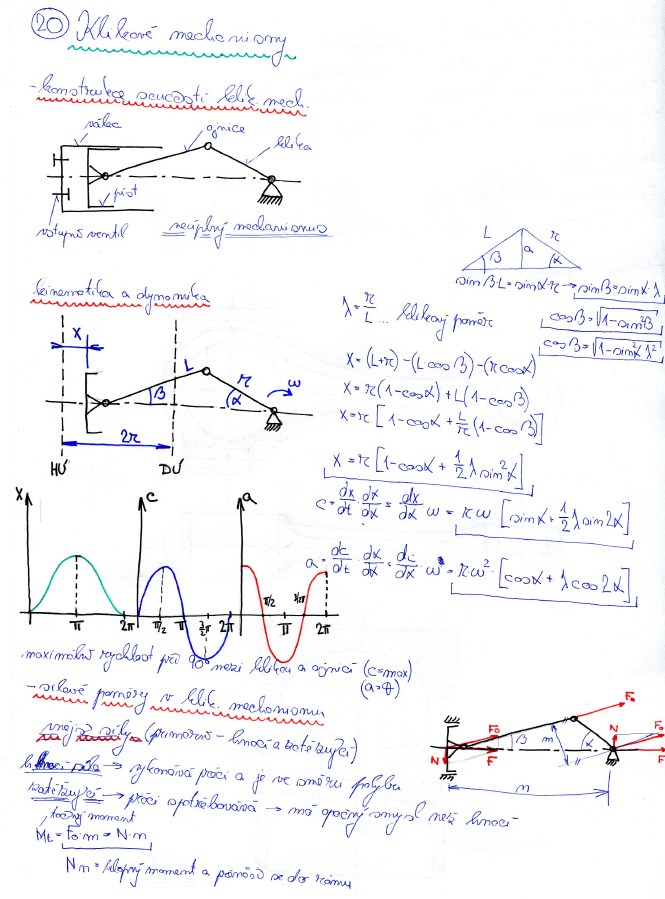 20 Klikové mechanismy
- konstrukce součástí klik. mech.
válec
ojnice
klika
píst
vstupní ventil
neúplný mechanismus
L r
β a α
sinβ·L=sinα·r → sinβ=sinα·λ
cosβ=√1-sin²β
cosβ=√1-sin²α λ²
kinematika a dynamika
λ = r/L ... klikový poměr
X=(L+r)-(L·cosβ)-(r·cosα)
X=r(1-cosα)+L(1-cosβ)
X=r[1-cosα+L/r(1-cosβ)]
X=r[1-cosα+1/2λsin²α]
X L r ω
β α
2r
HÚ DÚ
c=dx/dt·dα/dα=dx/dα·ω=rω[sinα+1/2λsin2α]
a=dc/dt·dα/dα=dc/dα·ω=rω²·[cosα+λcos2α]
X c a
π 2π π/2 π 3/2π 2π π/2 π 3/2π 2π
maximální rychlost při 90° mezi klikou a ojnicí (c=max)
(a=0)
- silové poměry v klik. mechanismu
vnější síly (primární - hnací a zatěžující)
hnací síla → vykonává práci a je ve směru pohybu
zatěžující → práci spotřebovává → má opačný smysl než hnací
točivý moment
Mt=Fo·m=N·n
Nn=klopný moment a přenáší se do rámu
Fo Fo N N F F
β m α
n